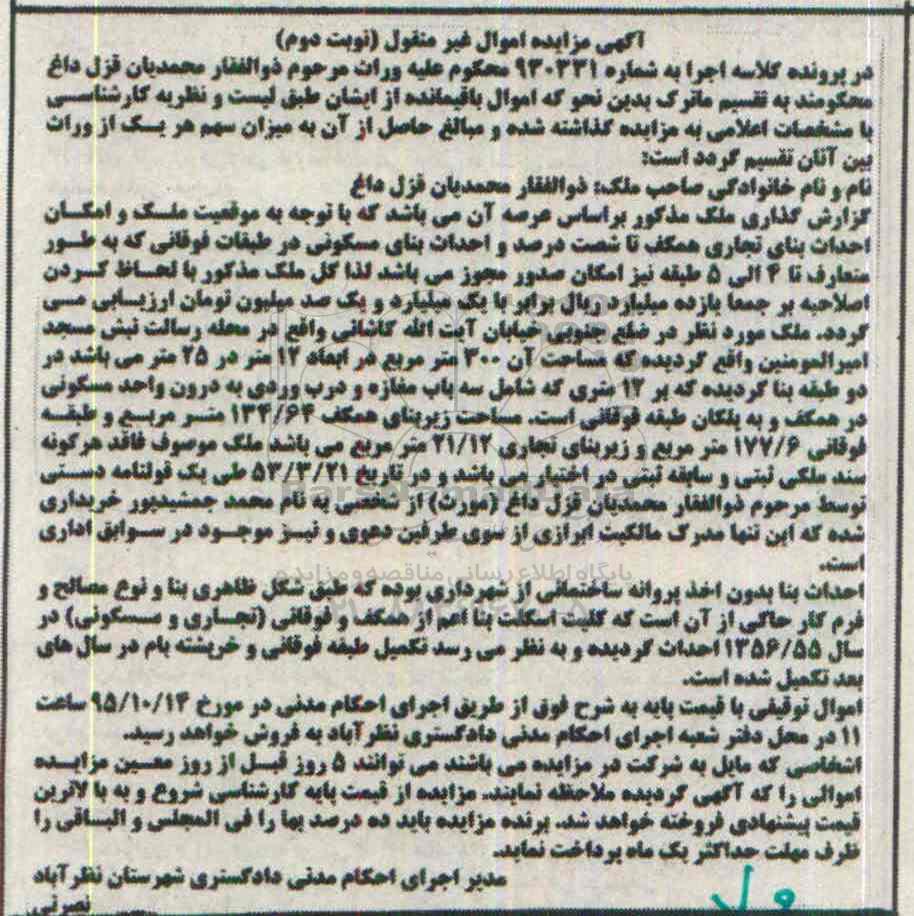 آگهی مزایده اموال غیر منقول (نوبت دوم)
در پرونده کلاسه اجرا به شماره ۹۳۰۳۳۱ محکوم علیه وراث مرحوم ذوالفقار محمدیان قزل داغ
محکومند به تقسیم ماترک بدین نحو که اموال باقیمانده از ایشان طبق لیست و نظریه کارشناسی
با مشخصات اعلامی به مزایده گذاشته شده و مبالغ حاصل از آن به میزان سهم هر یک از وراث
بین آنان تقسیم گردد است:
نام و نام خانوادگی صاحب ملک: ذوالفقار محمدیان قزل داغ
گزارش گذاری ملک مذکور براساس عرصه آن می باشد که با توجه به موقعیت ملک و امکان
احداث بنای تجاری همکف تا شصت درصد و احداث بنای مسکونی در طبقات فوقانی که به طور
متعارف تا ۴ الی ۵ طبقه نیز امکان صدور مجوز می باشد لذا کل ملک مذکور با لحاظ کردن
اصلاحیه بر جمعا یازده میلیارد ریال برابر با یک میلیارد و یک صد میلیون تومان ارزیابی می
گردد. ملک مورد نظر در ضلع جنوبی خیابان آیت الله کاشانی واقع در محله رسالت نبش مسجد
امیرالمومنین واقع گردیده که مساحت آن ۳۰۰ متر مربع در ابعاد ۱۲ متر در ۲۵ متر می باشد در
دو طبقه بنا گردیده که بر ۱۲ متری که شامل سه باب مغازه و درب وردی به درون واحد مسکونی
در همکف و به پلکان طبقه فوقانی است. مساحت زیربنای همکف ۱۳۴/۶۴ متر مربع و طبقه
فوقانی ۱۷۷/۶ متر مربع و زیربنای تجاری ۲۱/۱۲ متر مربع می باشد ملک موصوف فاقد هرگونه
سند ملکی ثبتی و سابقه ثبتی در اختیار می باشد و در تاریخ ۵۳/۳/۲۱ طی یک قولنامه دستی
توسط مرحوم ذوالفقار محمدیان قزل داغ (مورث) از شخصی به نام محمد جمشیدپور خریداری
شده که این تنها مدرک مالکیت ابرازی از سوی طرفین دعوی و نیز موجود در سوابق اداری
است.
پایگاه اطلاع رسانی مناقصه و مزایده
احداث بنا بدون اخذ پروانه ساختمانی از شهرداری بوده که طبق شکل ظاهری بنا و نوع مصالح و
فرم کار حاکی از آن است که کلیت اسکلت بنا اعم از همکف و فوقانی (تجاری و مسکونی) در
سال ۱۳۵۶/۵۵ احداث گردیده و به نظر می رسد تکمیل طبقه فوقانی و خرپشته بام در سال های
بعد تکمیل شده است.
اموال توقیفی با قیمت پایه به شرح فوق از طریق اجرای احکام مدنی در مورخ ۹۵/۱۰/۱۴ ساعت
۱۱ در محل دفتر شعبه اجرای احکام مدنی دادگستری نظرآباد به فروش خواهد رسید.
اشخاصی که مایل به شرکت در مزایده می باشند می توانند ۵ روز قبل از روز معین مزایده
اموالی را که آگهی گردیده ملاحظه نمایند. مزایده از قیمت پایه کارشناسی شروع و به با لاترین
قیمت پیشنهادی فروخته خواهد شد. برنده مزایده باید ده درصد بها را فی المجلس و الباقی را
ظرف مهلت حداکثر یک ماه پرداخت نماید.
مدیر اجرای احکام مدنی دادگستری شهرستان نظرآباد
نصرتی